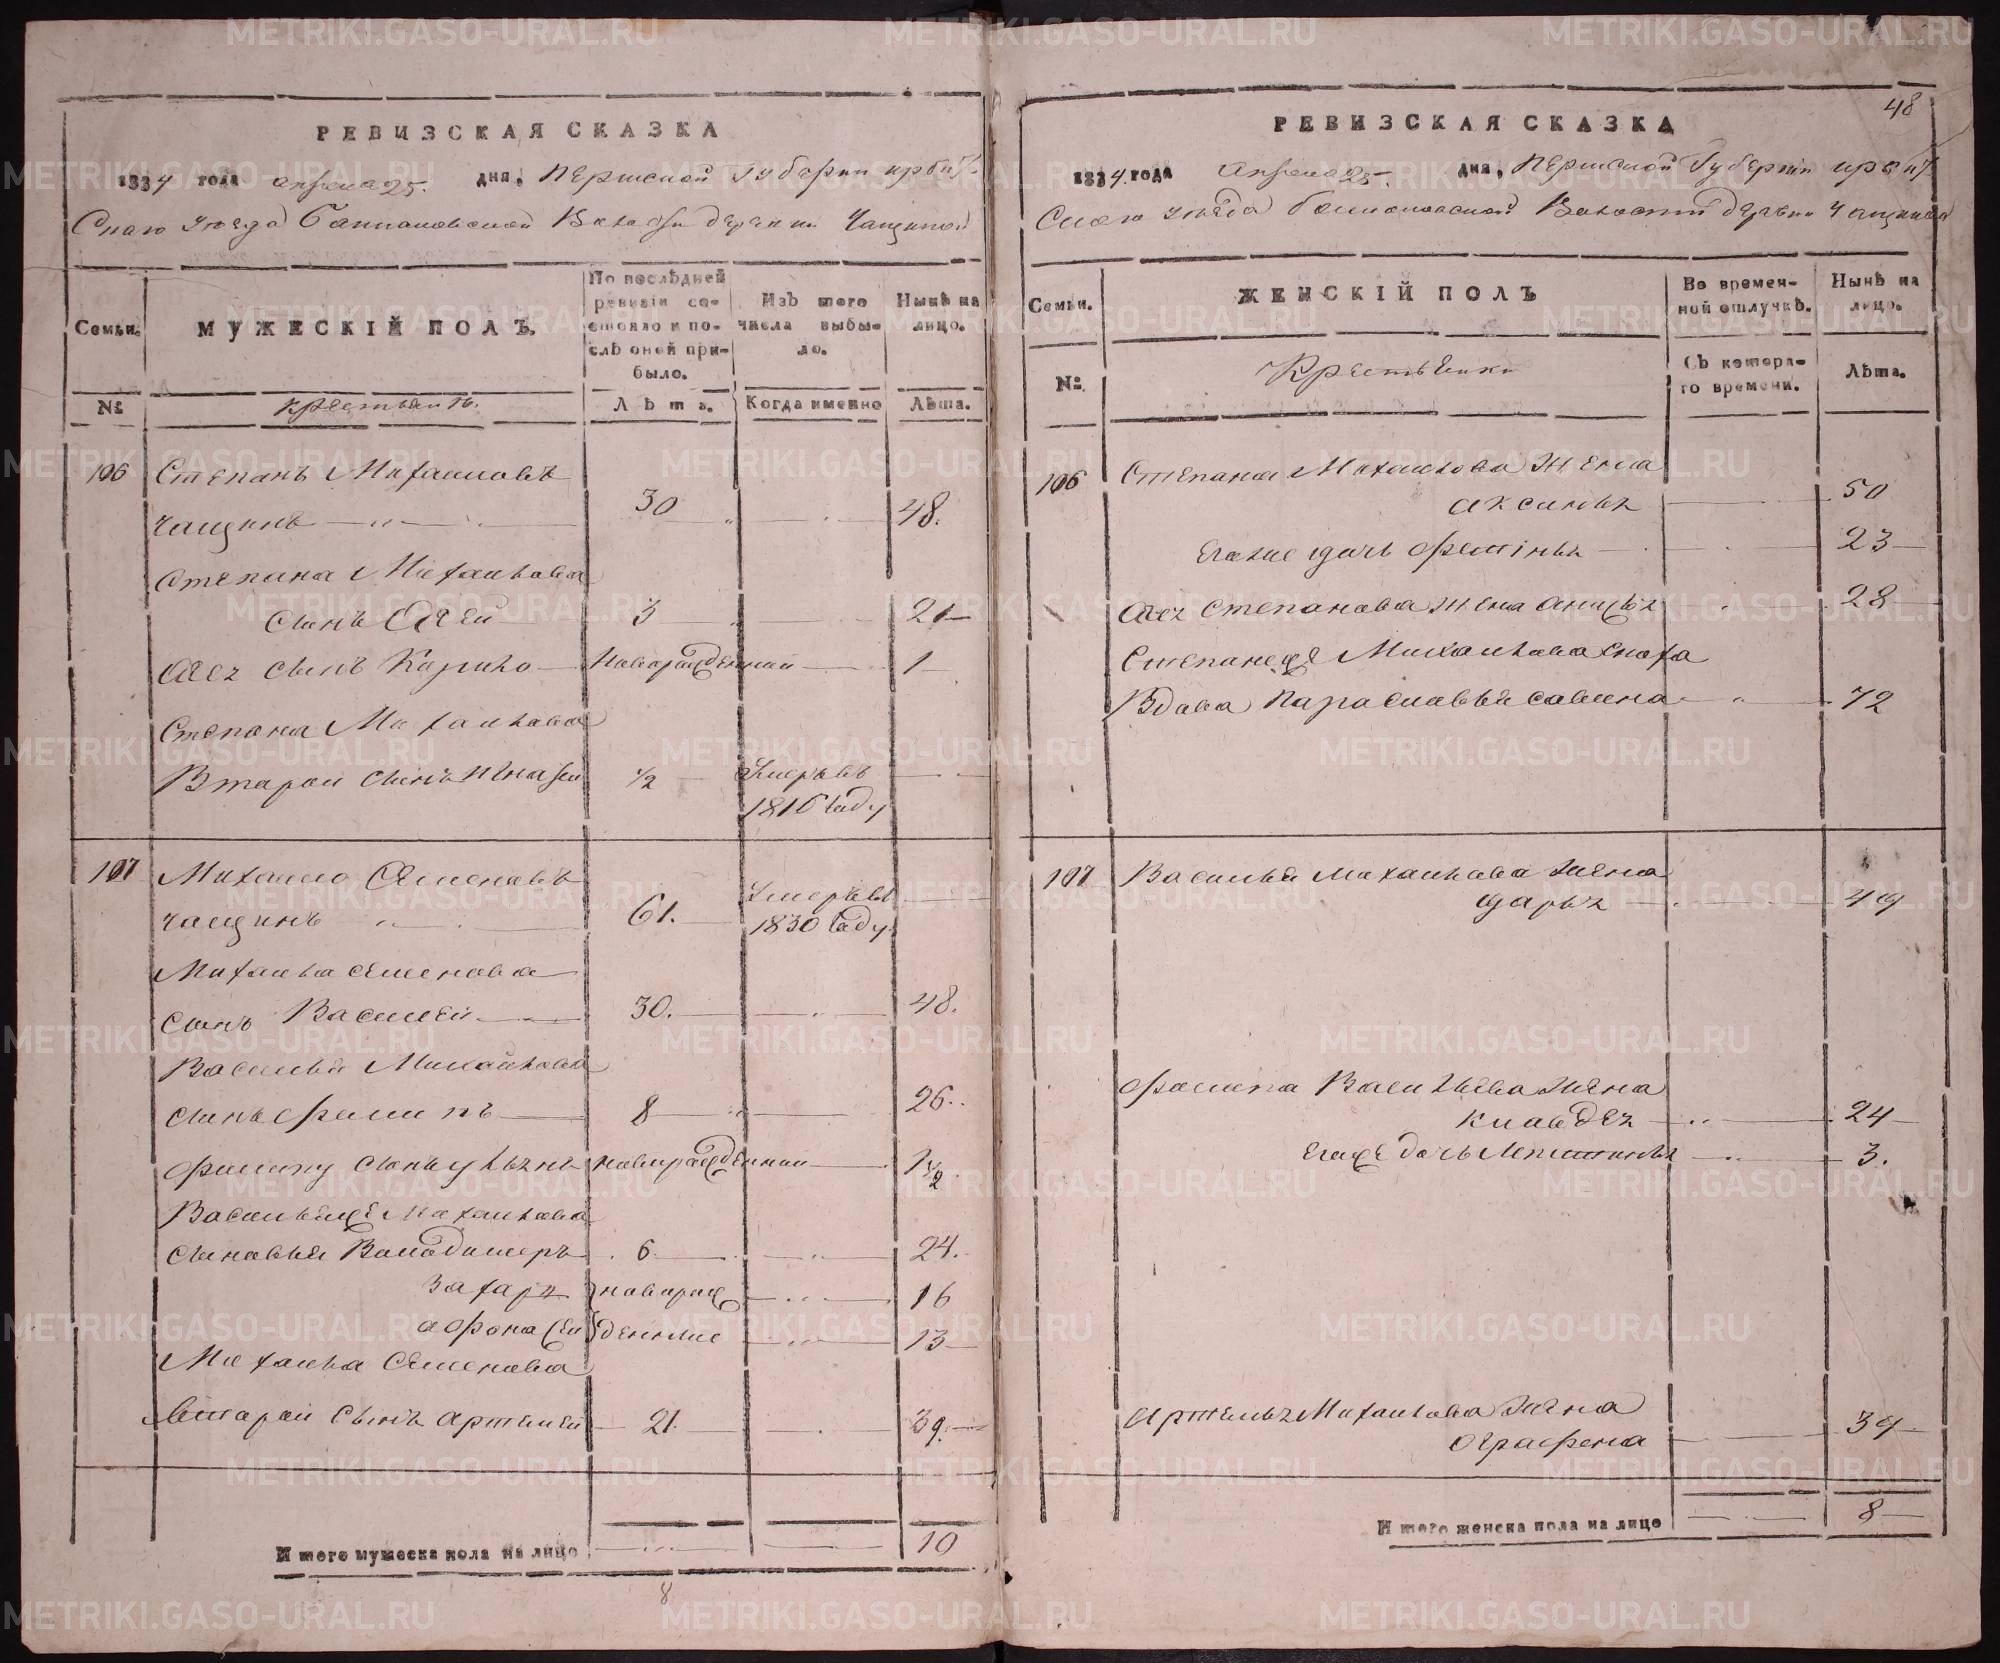 РЕВИЗСКАЯ СКАЗКА
1834 года апреля 25. дня, Пермской Губерни Ирбит-
скаго уезда Волости деревни Чащиной
Семьи.
МУЖЕСКІЙ ПОЛЪ.
По послѣдней ревизіи состояло и послѣ оной прибыло.
Изъ того числа выбыло.
Нынѣ на лицо.
№
крестьянъ.
Лѣта.
Когда именно
Лѣта.
106 Степанъ Михаиловъ
Чащинъ 30 48.
Степана Михаилова
сынъ 3 21
сынъ Кирило новорожденной 1
Степана Михаилова
Второй сынъ Игнатей 1/2 Умеръ въ
1816 году
107 Михаило Семеновъ
Чащинъ 61. Умеръ въ
1830 году
Михаила Семенова
сынъ Василей 30. 48.
Василья Михайлова
сынъ Филипъ 8 26.
Филипу сынъ новорожденной 1 1/2
Васильеще Михаилова
сыновья Володимеръ 6 24.
Захаръ новорож 16
Афонасей денные 13
Михаила Семенова
Второй сынъ Артемей 21. 39.
Итого мужеска пола на лицо 10
8
48
РЕВИЗСКАЯ СКАЗКА
1834 года апреля 25. дня, Пермской Губерніи Ирбит
скаго уезда Волости деревни Чащиной
Семьи.
ЖЕНСКІЙ ПОЛЪ
Во временной отлучкѣ.
Нынѣ на лицо.
№
Крестьянки
Съ котораго времени.
Лѣта.
106 Степана Михаилова жена
Аксинья 50
дочь Фетинья 23
Степанова жена 28
Степанеще Михаилова сноха
Вдова Парасковья Савина 72
107 Василья Михаилова жена
Дарья 49
Филипа Васильева жена
Клавдея 24
Егоже дочь 3.
Артемья Михаилова жена
Аграфена 39
Итого женска пола на лицо 8
METRIKI.GASO-URAL.RU